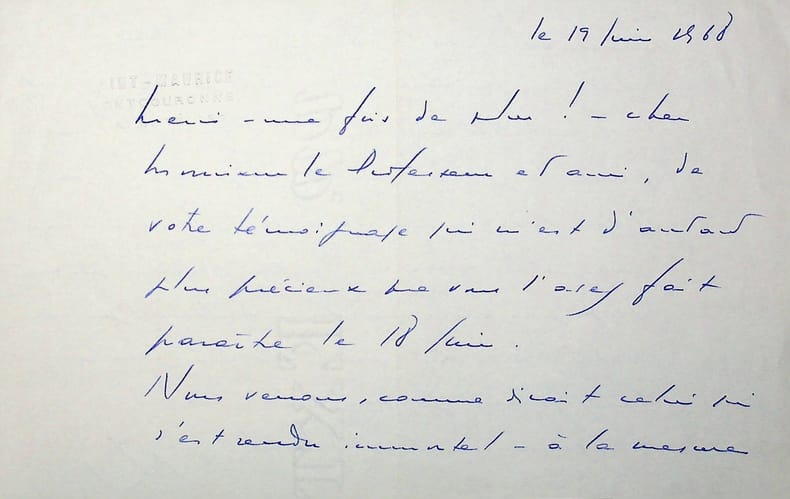 le 19 juin 1968
INT-MAURICE
Merci - une fois de plus ! - cher
Monsieur le Professeur et ami, de
votre témoignage qui m'est d'autant
plus précieux que vous l'avez fait
paraître le 18 juin.
Nous venons, comme dirait celui qui
s'est rendu immortel - à la mesure